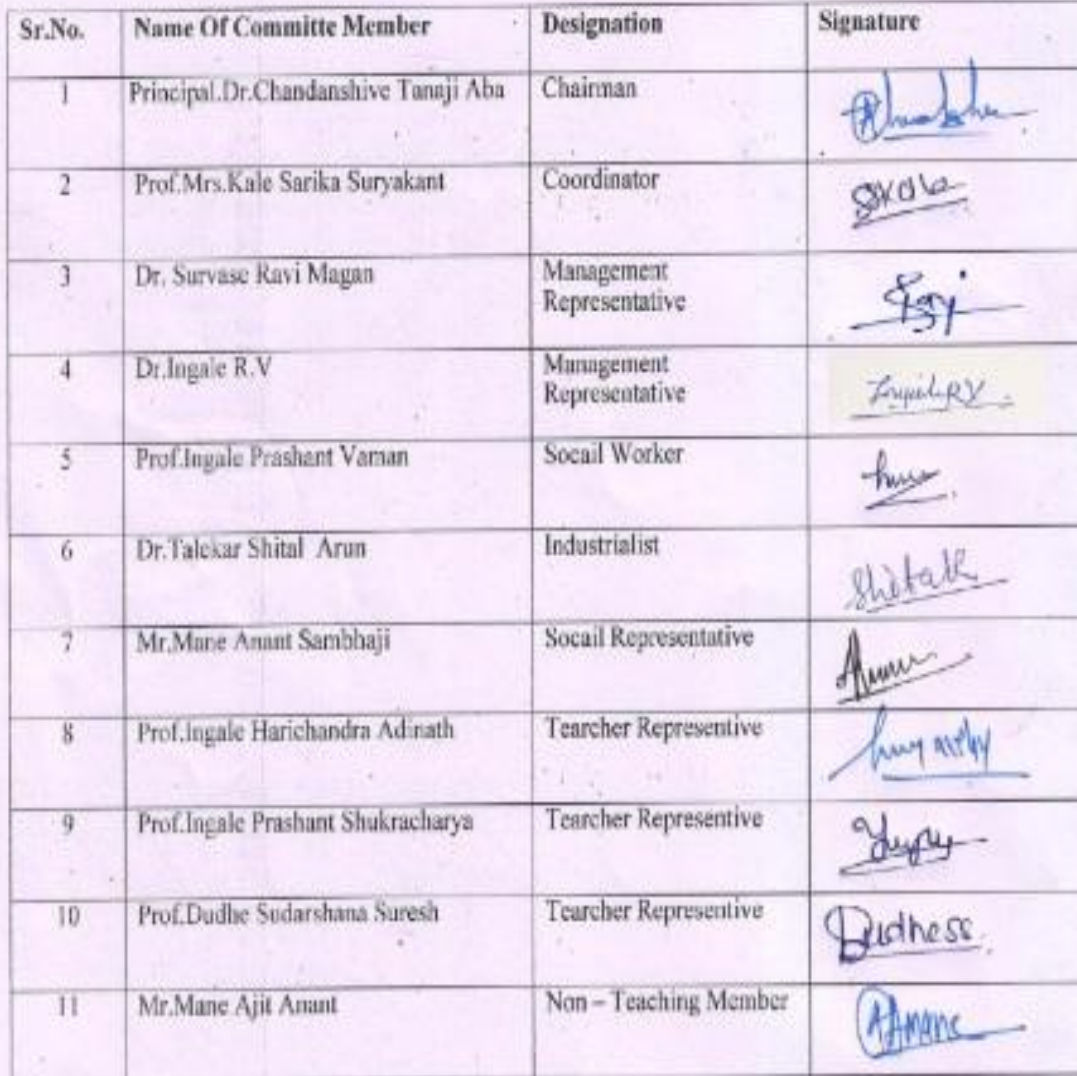 Sr.No. Name Of Committe Member Designation Signature
1 Principal.Dr.Chandanshive Tanaji Aba Chairman
2 Prof.Mrs.Kale Sarika Suryakant Coordinator SKale
3 Dr. Survase Ravi Magan Management
Representative
4 Dr.Ingale R.V Management
Representative IngaleRV.
5 Prof.Ingale Prashant Vaman Socail Worker
6 Dr.Talekar Shital Arun Industrialist Shitalk
7 Mr.Mane Anant Sambhaji Socail Representative
8 Prof.Ingale Harichandra Adinath Tearcher Representive
9 Prof.Ingale Prashant Shukracharya Tearcher Representive
10 Prof.Dudhe Sudarshana Suresh Tearcher Representive Dudhess.
11 Mr.Mane Ajit Anant Non – Teaching Member AAMane